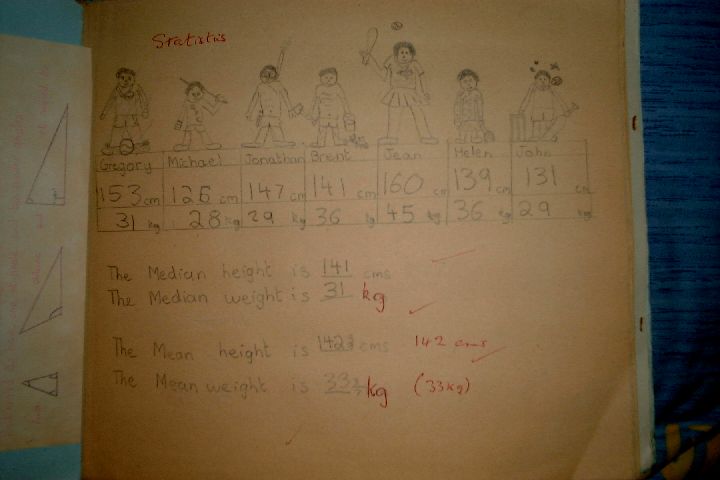 Statistics
Gregory Michael Jonathan Brent Jean Helen John
153 cm 126 cm 147 cm 141 cm 160 cm 139 cm 131 cm
31 kg 28 kg 29 kg 36 kg 45 kg 36 kg 29 kg
The Median height is 141 cms
The Median weight is 31 kg
The Mean height is cms 142 cms
The Mean weight is kg (33kg)